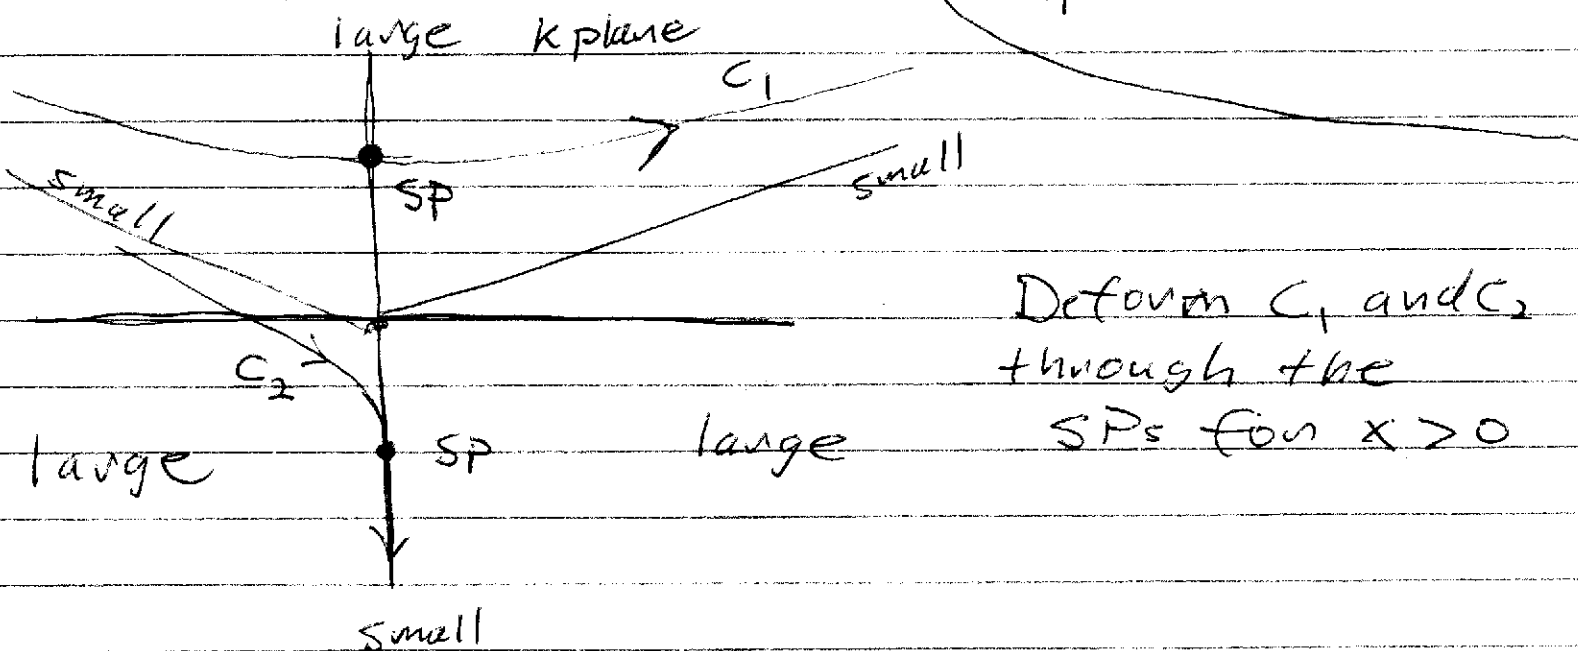 large k plane
C₁
SP
small
small
Deform C₁ and C₂
through the
C₂
SPs for x > 0
large
SP
large
small